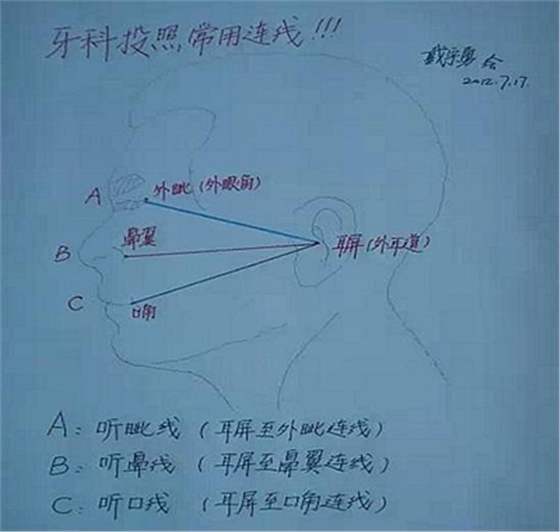 牙科投照常用连线!!!
戴宗勇 绘
2012.7.17.
A 外眦(外眼角)
B 鼻翼 耳屏(外耳道)
C 口角
A: 听眦线 (耳屏至外眦连线)
B: 听鼻线 (耳屏至鼻翼连线)
C: 听口线 (耳屏至口角连线)